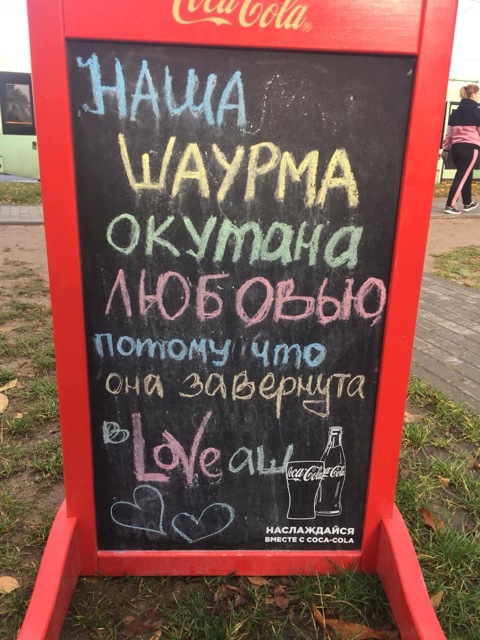 Coca-Cola
НАША
ШАУРМА
ОКУТАНА
ЛЮБОВЬЮ
потому что
она завернута
в Love аш
Coca-Cola Coca-Cola
НАСЛАЖДАЙСЯ
ВМЕСТЕ С COCA-COLA